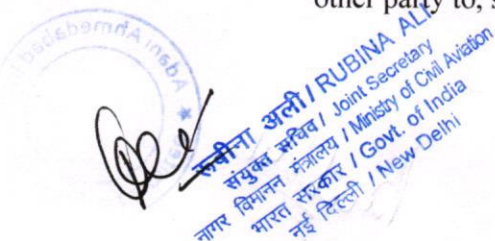 other party to, s
रूबीना अली / RUBINA ALI
संयुक्त सचिव / Joint Secretary
नागर विमानन मंत्रालय / Ministry of Civil Aviation
भारत सरकार / Govt. of India
नई दिल्ली / New Delhi
Adani Ahmedabad